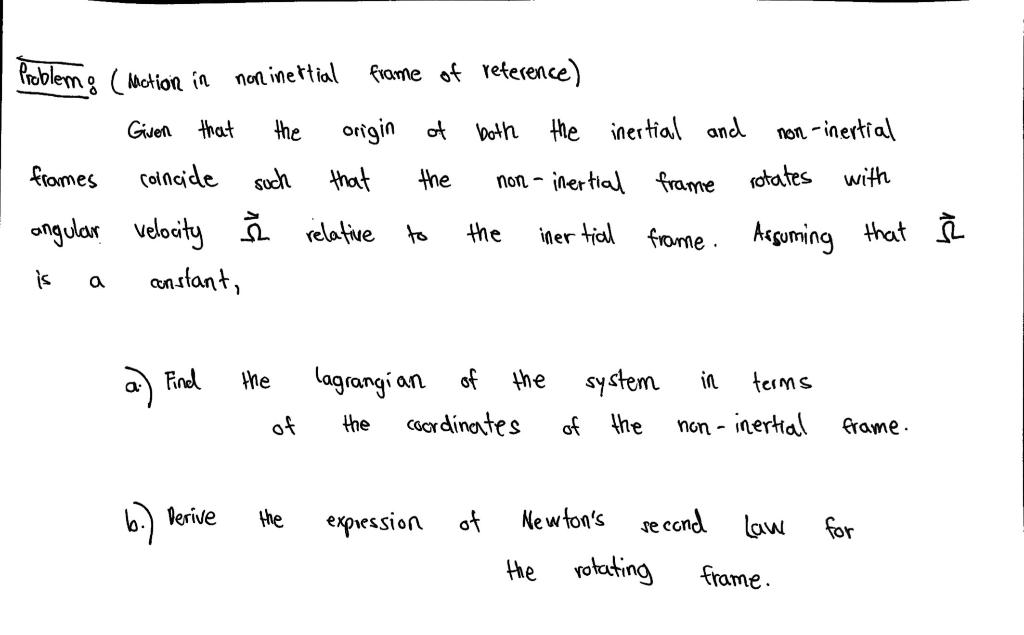 Problem: (Motion in noninertial frame of reference)
Given that the origin of both the inertial and non-inertial
frames coincide such that the non-inertial frame rotates with
angular velocity $\vec{\Omega}$ relative to the inertial frame. Assuming that $\vec{\Omega}$
is a constant,
a.) Find the lagrangian of the system in terms
of the coordinates of the non-inertial frame.
b.) Derive the expression of Newton's second law for
the rotating frame.